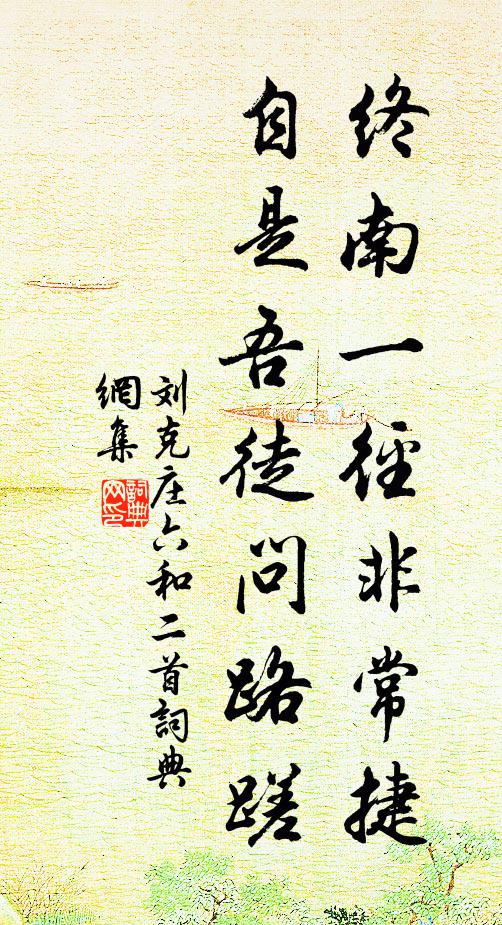 終南一徑非常捷
自是吾徒問路蹉
刘克庄六和二首詞典
網集
詞典
网印